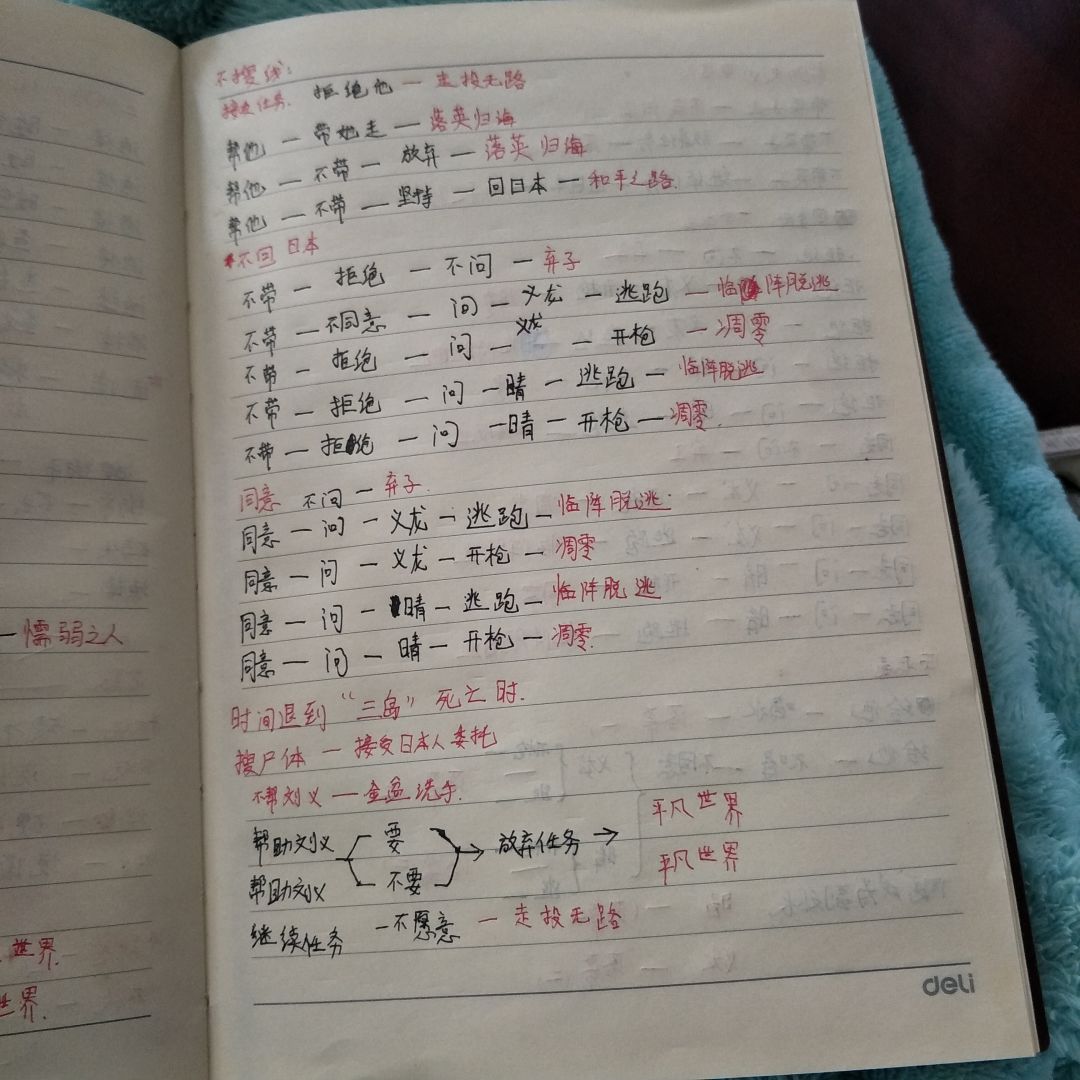 不搜线：
接受任务. 拒绝他 — 走投无路
帮他 — 带她走 — 落英归海
帮他 — 不带 — 放弃 — 落英归海
帮他 — 不带 — 坚持 — 回日本 — 和平之路.
不回日本
不带 — 拒绝 — 不问 — 弃子
不带 — 不同意 — 问 — 义龙 — 逃跑 — 临阵脱逃
不带 — 拒绝 — 问 — 义龙 — 开枪 — 凋零
不带 — 拒绝 — 问 — 晴 — 逃跑 — 临阵脱逃
不带 — 拒绝 — 问 — 晴 — 开枪 — 凋零.
同意 不问 — 弃子.
同意 — 问 — 义龙 — 逃跑 — 临阵脱逃
同意 — 问 — 义龙 — 开枪 — 凋零
同意 — 问 — 晴 — 逃跑 — 临阵脱逃
同意 — 问 — 晴 — 开枪 — 凋零.
— 懦弱之人
时间退到“三岛”死亡时.
搜尸体 — 接受日本人委托
不帮刘义 — 金盆洗手.
帮助刘义 — 要 → 放弃任务 → 平凡世界
帮助刘义 — 不要 平凡世界
继续任务 — 不愿意 — 走投无路
世界.
世界.
deli